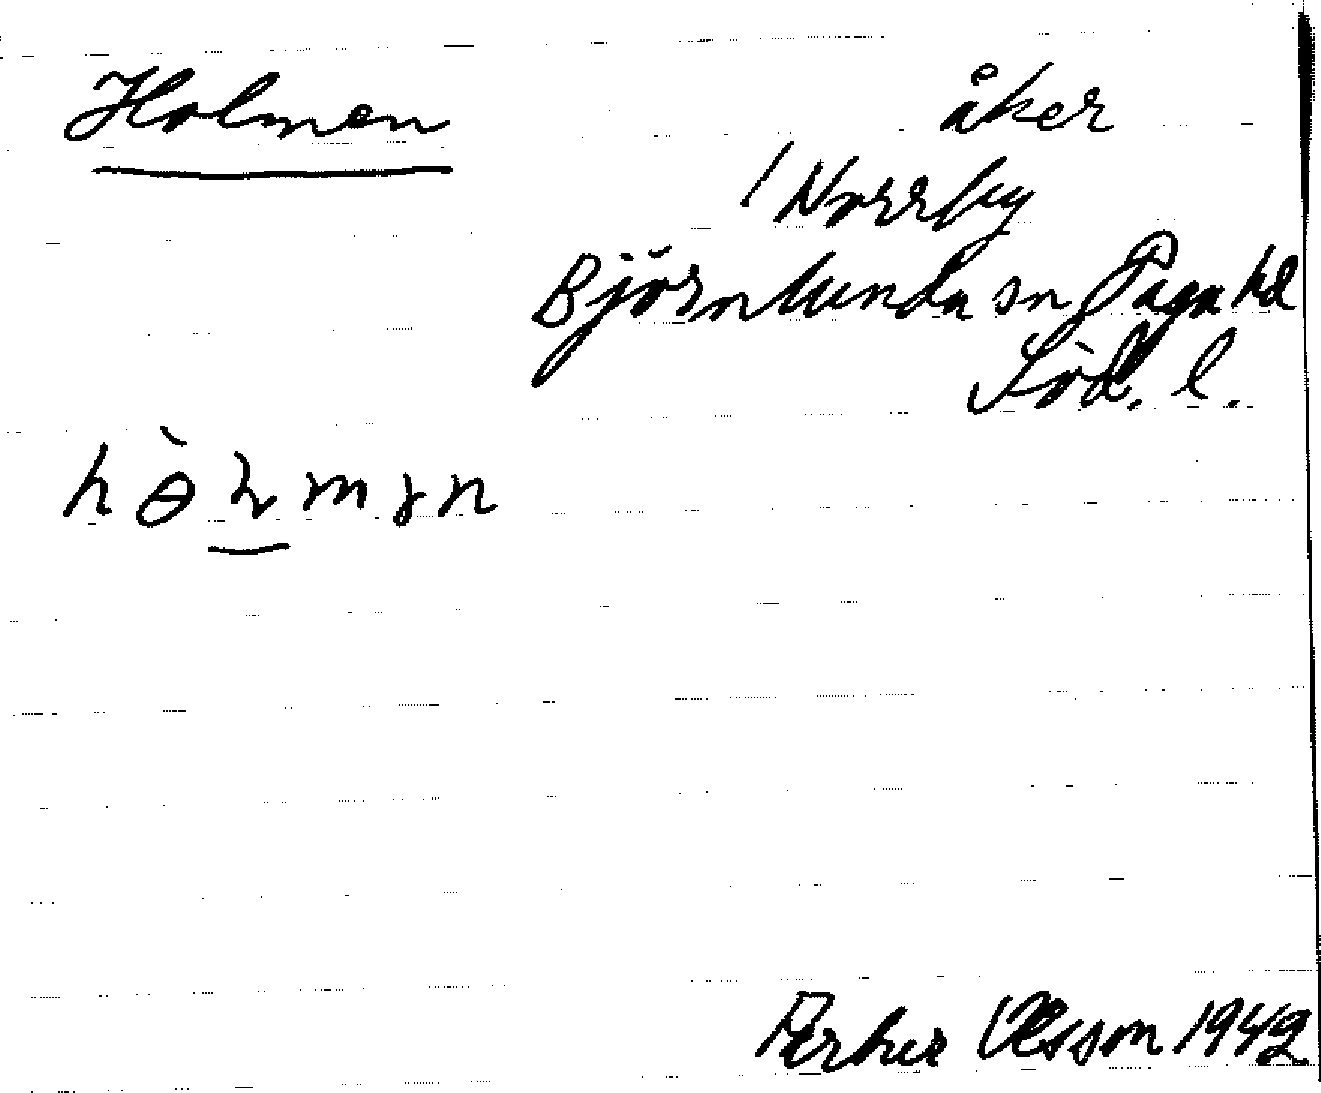 Holmen åker
/ Norrby
Björnlunda sn Daga hd
Söd. l.
Olsson 1942